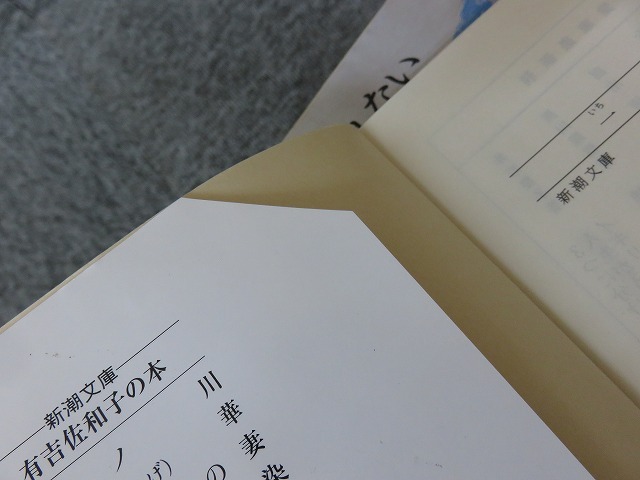 たい
いち
一
新潮文庫
新潮文庫
有吉佐和子の本
川
華
妻
染
の
ノ
げ）